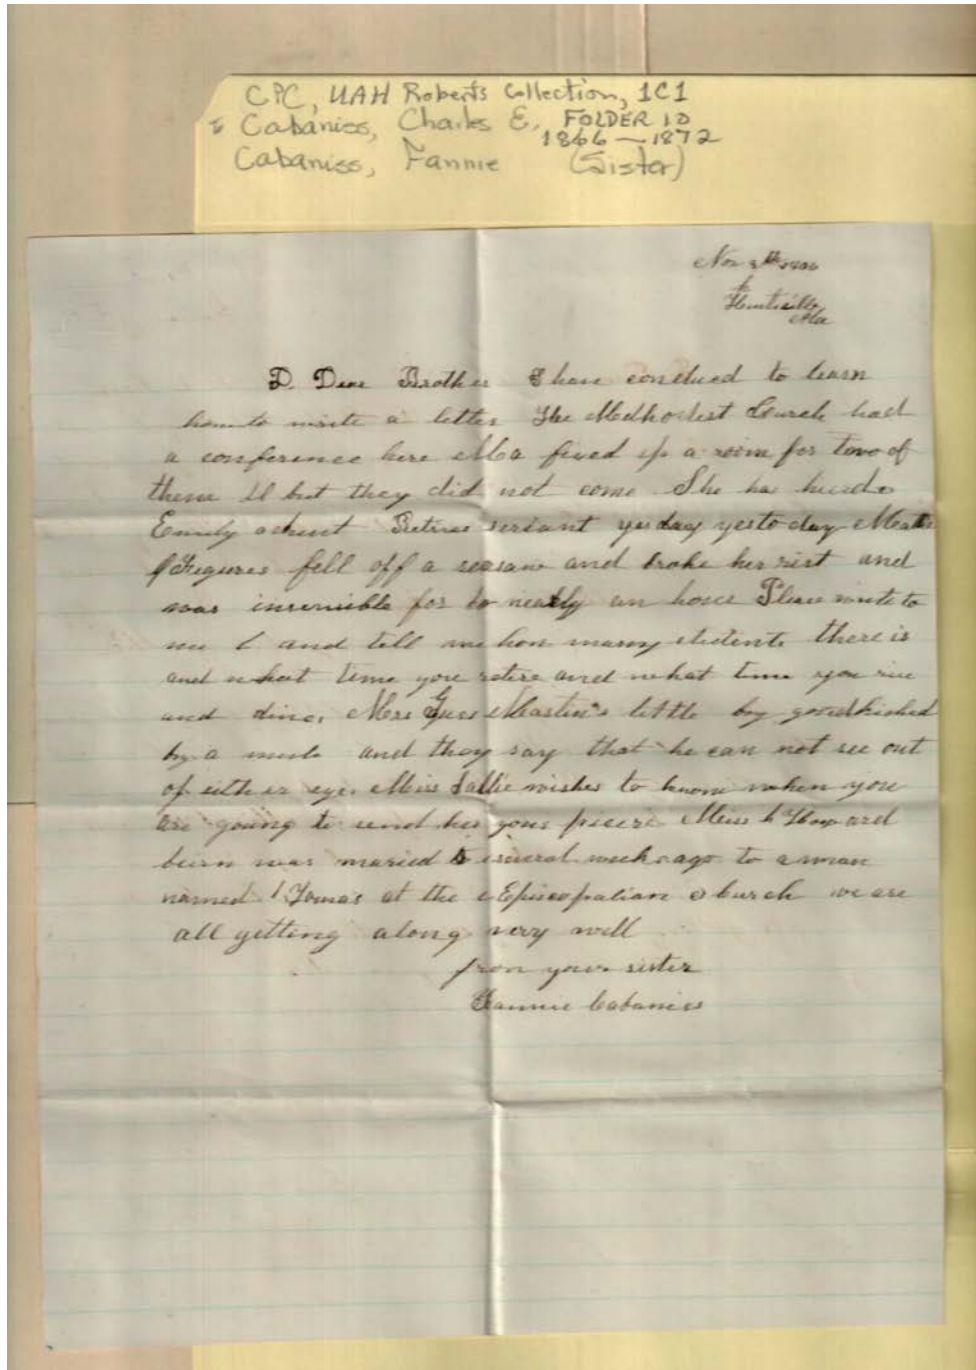 CPC, UAH Roberts Collection, 1C1
Cabaniss, Charles E. FOLDER 10
1866 — 1872
Cabaniss, Fannie (Sister)
Nov
Huntsville
Ala
D. Dear Brother I have conclued to learn
how to write a letter The Medhodist Curch had
a conference here Ma fixed up a room for two of
them but they did not come She ha
Emily servant yesday yesto day
Figures fell off a seesaw and broke her rist and
was insensible for to nearly an hour Please write to
me and tell me how many students there is
and what time you retire and what time you rise
and dine, Mrs Guss Martin's little
by a mule and they say that he can not see out
of either eye. Miss Sallie wishes to know when you
are going to send her your Miss
burn was maried several weeks ago to a man
named Tomas at the Episcopalian church we are
all getting along very well
from your sister
Fannie Cabaniss